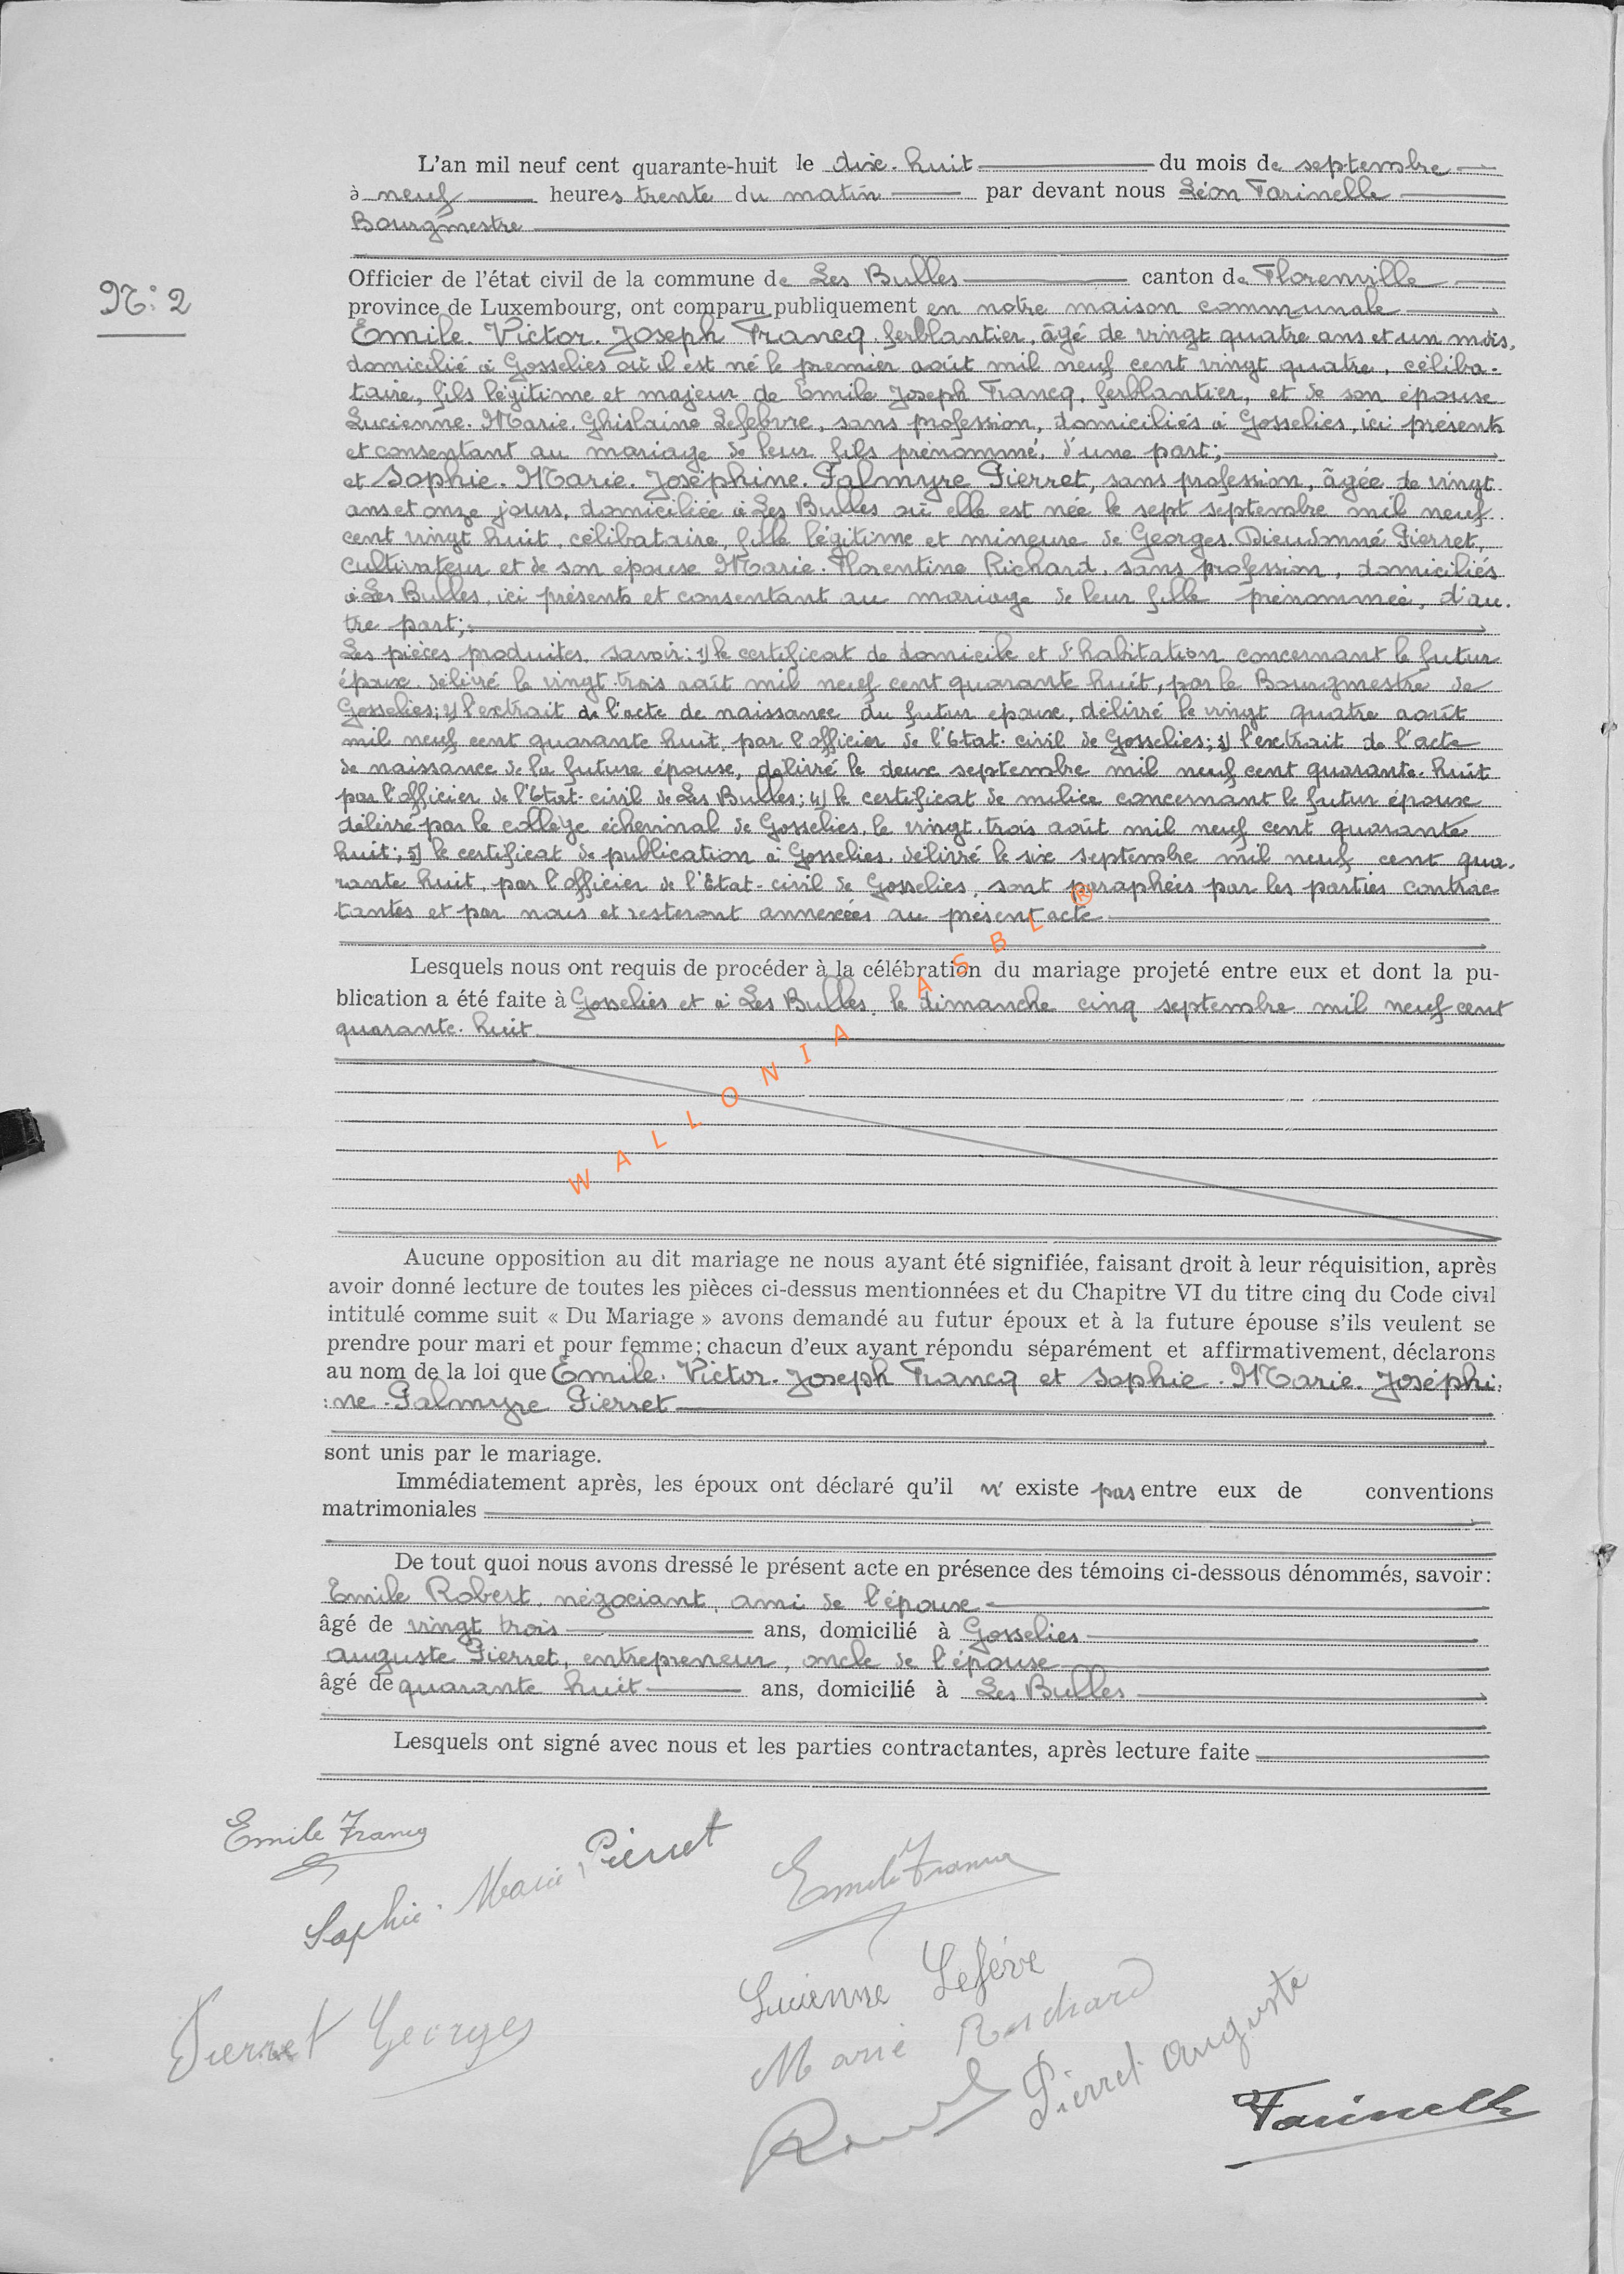 L'an mil neuf cent quarante-huit le dix-huit du mois de septembre
à neuf heures trente du matin par devant nous Léon Farinelle
Bourgmestre
Officier de l'état civil de la commune de Les Bulles canton de Florenville
N: 2
province de Luxembourg, ont comparu publiquement en notre maison communale
Emile. Victor. Joseph Francq. ferblantier, âgé de vingt quatre ans et un mois,
domicilié à Gosselies où il est né le premier août mil neuf cent vingt quatre, céliba-
taire, fils légitime et majeur de Emile Joseph Francq. ferblantier, et de son épouse
Lucienne. Marie. Ghislaine Lefebvre, sans profession, domiciliés à Gosselies, ici présents
et consentant au mariage de leur fils prénommé, d'une part;
et Sophie. Marie. Joséphine. Palmyre Pierret, sans profession, âgée de vingt
ans et onze jours, domiciliée à Les Bulles où elle est née le sept septembre mil neuf
cent vingt huit, célibataire, fille légitime et mineure de Georges. Dieudonné Pierret,
cultivateur et de son épouse Marie. Florentine Richard, sans profession, domiciliés
à Les Bulles, ici présents et consentant au mariage de leur fille prénommée, d'au-
tre part;
Les pièces produites, savoir: 1) le certificat de domicile et d'habitation concernant le futur
époux délivré le vingt-trois août mil neuf cent quarante huit, par le Bourgmestre de
Gosselies; 2) l'extrait de l'acte de naissance du futur époux, délivré le vingt quatre août
mil neuf cent quarante huit, par l'officier de l'Etat-civil de Gosselies; 3) l'extrait de l'acte
de naissance de la future épouse, délivré le deux septembre mil neuf cent quarante-huit
par l'officier de l'Etat-civil de Les Bulles; 4) le certificat de milice concernant le futur époux
délivré par le collège échevinal de Gosselies, le vingt-trois août mil neuf cent quarante
huit; 5) le certificat de publication à Gosselies, délivré le six septembre mil neuf cent qua-
rante huit, par l'officier de l'Etat-civil de Gosselies, sont paraphées par les parties contrac-
tantes et par nous et resteront annexées au présent acte
Lesquels nous ont requis de procéder à la célébration du mariage projeté entre eux et dont la pu-
blication a été faite à Gosselies et à Les Bulles, le dimanche cinq septembre mil neuf cent
quarante-huit
WALLONIA ASBL ®
Aucune opposition au dit mariage ne nous ayant été signifiée, faisant droit à leur réquisition, après
avoir donné lecture de toutes les pièces ci-dessus mentionnées et du Chapitre VI du titre cinq du Code civil
intitulé comme suit « Du Mariage » avons demandé au futur époux et à la future épouse s'ils veulent se
prendre pour mari et pour femme; chacun d'eux ayant répondu séparément et affirmativement, déclarons
au nom de la loi que Emile. Victor. Joseph Francq et Sophie. Marie. Joséphi:
:ne. Palmyre Pierret
sont unis par le mariage.
Immédiatement après, les époux ont déclaré qu'il n' existe pas entre eux de conventions
matrimoniales
De tout quoi nous avons dressé le présent acte en présence des témoins ci-dessous dénommés, savoir:
Emile Robert, négociant, ami de l'époux
âgé de vingt trois ans, domicilié à Gosselies
Auguste Pierret, entrepreneur, oncle de l'épouse
âgé de quarante huit ans, domicilié à Les Bulles
Lesquels ont signé avec nous et les parties contractantes, après lecture faite
Emile Francq
Sophie. Marie Pierret
Emile Francq
Lucienne Lefèvre
Pierret Georges
Marie Richard
Pierret Auguste
Farinelle